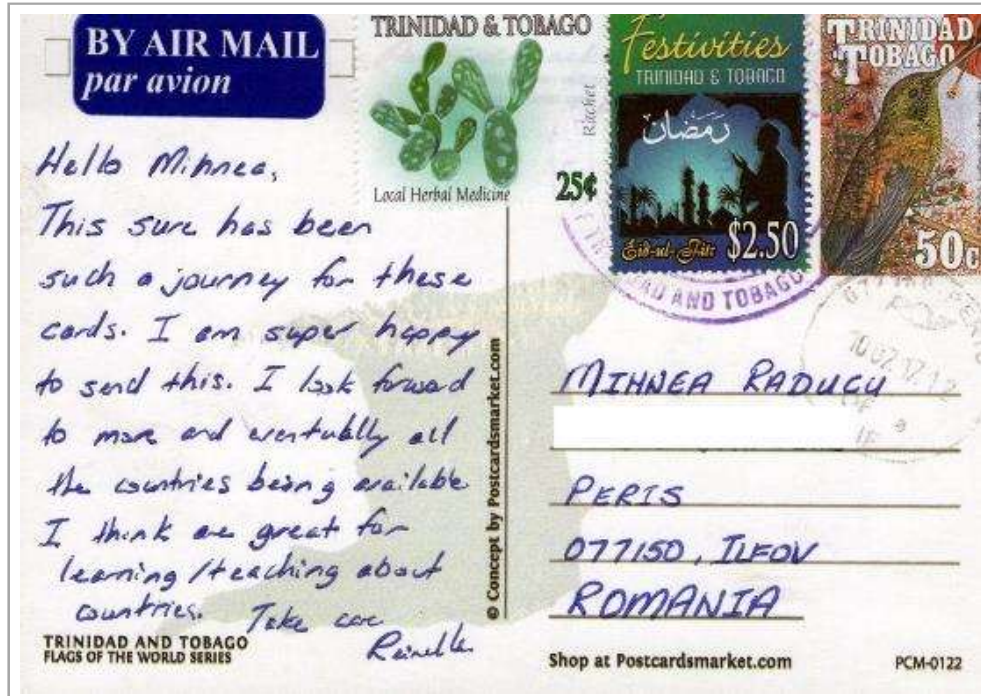 BY AIR MAIL
par avion
TRINIDAD & TOBAGO
Rachet
Local Herbal Medicine
25¢
Festivities
TRINIDAD & TOBAGO
رمضان
Eid-ul-Fitr $2.50
TRINIDAD
& TOBAGO
50c
AND TOBAGO
Hello Mihnea,
This sure has been
such a journey for these
cards. I am super happy
to send this. I look forward
to more and eventually all
the countries being available
I think are great for
learning/teaching about
countries. Take care
© Concept by Postcardsmarket.com
MIHNEA RADUCU
PERIS
077150, ILFOV
ROMANIA
TRINIDAD AND TOBAGO
FLAGS OF THE WORLD SERIES
Shop at Postcardsmarket.com
PCM-0122